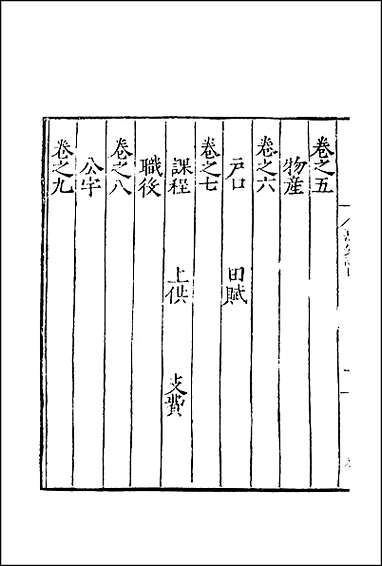 卷之五
物産
卷之六
戸口 田賦
卷之七
課程 上供 支費
職役
卷之八
公宇
卷之九